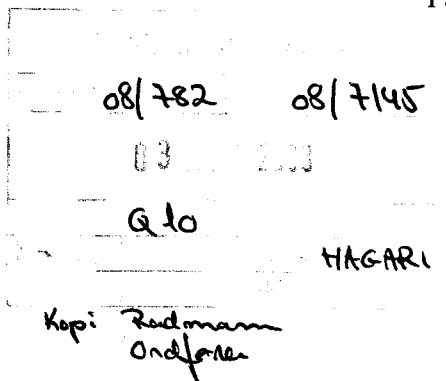 08/782 08/7145
03
Q10
HAGARI
Kopi Rådmann
Ordfører